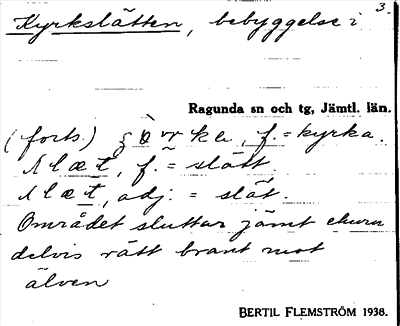 3.
Kyrkslätten, bebyggelse i
Ragunda sn och tg, Jämtl. län.
(forts.) f. = kyrka.
f. = slätt.
adj. = slät.
Området sluttar jämt ehuru
delvis rätt brant mot
älven
BERTIL FLEMSTRÖM 1938.